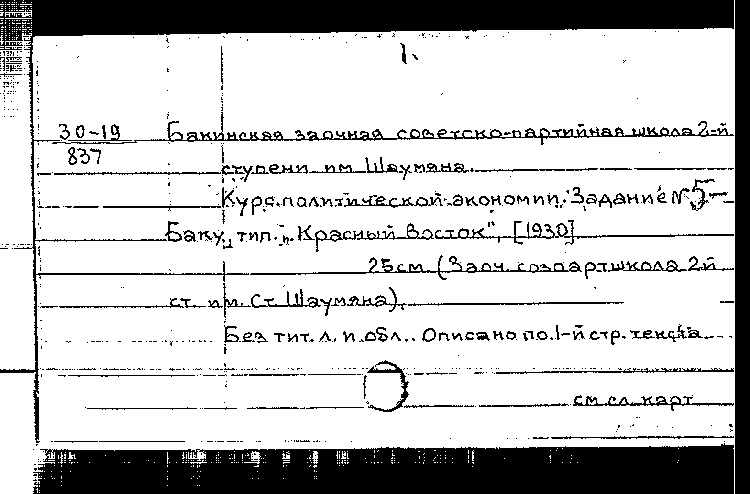 1.
30-19 Бакинская заочная советско-партийная школа 2-й
837
ступени им Шаумяна.
Курс политической экономии. Задание № 5 –
Баку, тип. "Красный Восток", [1930]
25см. (Заоч. совпартшкола 2й
ст. им. Ст. Шаумяна).
Без тит. л. и обл.. Описано по 1-й стр. текста
см сл. карт